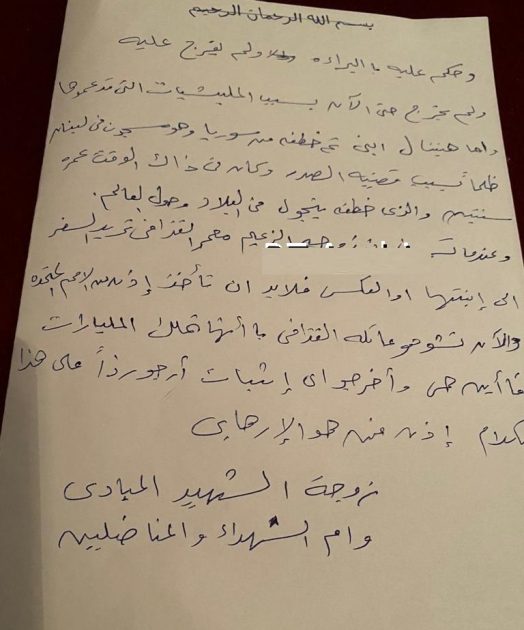 بسم الله الرحمان الرحيم
وحكم عليه بالبراءه ولم يفرج عليه
ولم يخرج حتى الآن بسبب المليشيات التى
واما هنيبال ابنى تم خطفه من سوريا وهو مسجون فى لبنان
ظلماً بسبب قضية الصدر وكان فى ذاك الوقت عمره
سنتين والذى خطفه يتجول فى البلاد وحول العالم.
وعندما الزعيم معمر القذافى تريد السفر
الى إبنتها او العكس فلابد ان تأخذ إذن من الامم المتحده
والآن تشوهو عائله القذافى بأنها تملك المليارات
فأين هى وأخرجو اى إثبات أرجو رداً على هذا
الكلام إذن من هو الإرهابى
زوجة الشهيد المبادى
وام الشهداء والمناضلين